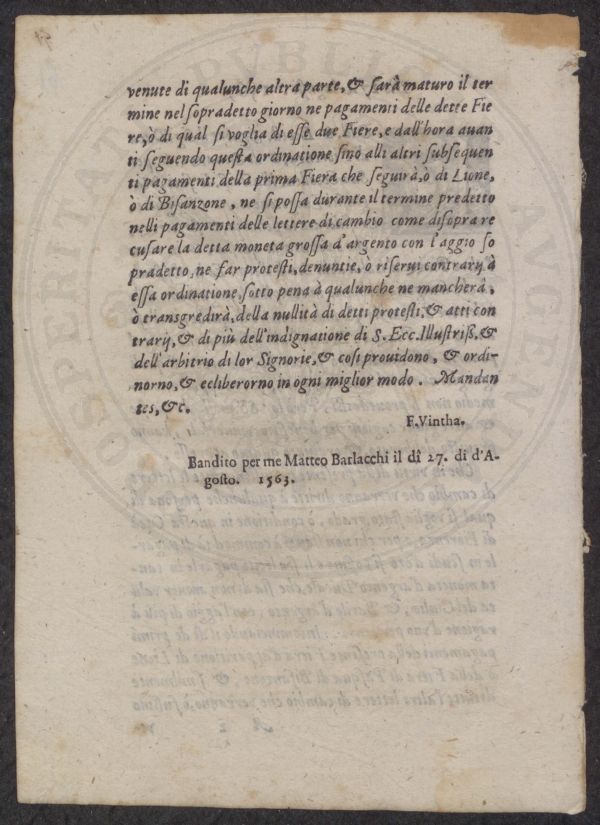 venute di qualunche altra parte, & sarà maturo il ter
mine nel sopradetto giorno ne pagamenti delle dette Fie
re, ò di qual si voglia di esse due Fiere, e dall'hora auan
ti seguendo questa ordinatione sino alli altri subsequen
ti pagamenti della prima Fiera che seguirà, ò di Lione,
ò di Bisanzone, ne si possa durante il termine predetto
nelli pagamenti delle lettere di cambio come disopra re
cusare la detta moneta grossa d'argento con l'aggio so
pradetto, ne far protesti, denuntie, ò riserui contrarij à
essa ordinatione, sotto pena à qualunche ne mancherà,
ò transgredirà, della nullità di detti protesti, & atti con
trarij, & di più dell'indignatione di S. Ecc. Illustriß. &
dell'arbitrio di lor Signorie, & cosi prouidono, & ordi-
norno, & ecliberorno in ogni miglior modo. Mandan
tes, &c.
F. Vintha.
Bandito per me Matteo Barlacchi il dì 27. di d'A-
gosto. 1563.